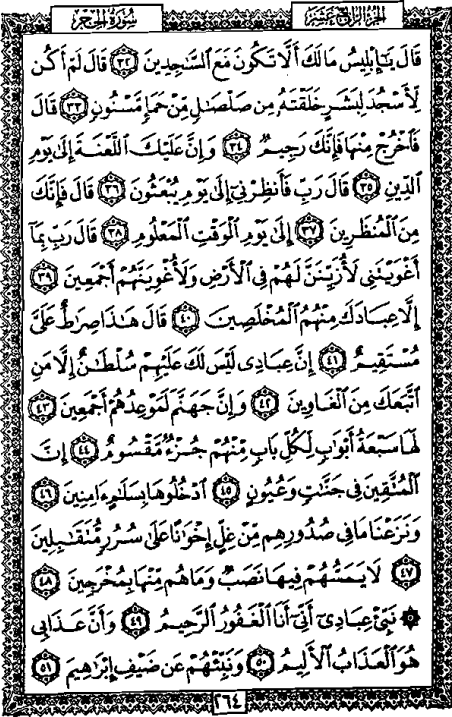 سُورَةُ الحِجْرِ
الجُزْءُ الرَّابِعَ عَشَرَ
قَالَ يَٰٓإِبْلِيسُ مَالَكَ أَلَّا تَكُونَ مَعَ ٱلسَّٰجِدِينَ ٣٢ قَالَ لَمْ أَكُن
لِّأَسْجُدَ لِبَشَرٍ خَلَقْتَهُۥ مِن صَلْصَٰلٍ مِّنْ حَمَإٍ مَّسْنُونٍ ٣٣ قَالَ
فَٱخْرُجْ مِنْهَا فَإِنَّكَ رَجِيمٌ ٣٤ وَإِنَّ عَلَيْكَ ٱللَّعْنَةَ إِلَىٰ يَوْمِ
ٱلدِّينِ ٣٥ قَالَ رَبِّ فَأَنظِرْنِىٓ إِلَىٰ يَوْمِ يُبْعَثُونَ ٣٦ قَالَ فَإِنَّكَ
مِنَ ٱلْمُنظَرِينَ ٣٧ إِلَىٰ يَوْمِ ٱلْوَقْتِ ٱلْمَعْلُومِ ٣٨ قَالَ رَبِّ بِمَآ
أَغْوَيْتَنِى لَأُزَيِّنَنَّ لَهُمْ فِى ٱلْأَرْضِ وَلَأُغْوِيَنَّهُمْ أَجْمَعِينَ ٣٩
إِلَّا عِبَادَكَ مِنْهُمُ ٱلْمُخْلَصِينَ ٤٠ قَالَ هَٰذَا صِرَٰطٌ عَلَىَّ
مُسْتَقِيمٌ ٤١ إِنَّ عِبَادِى لَيْسَ لَكَ عَلَيْهِمْ سُلْطَٰنٌ إِلَّا مَنِ
ٱتَّبَعَكَ مِنَ ٱلْغَاوِينَ ٤٢ وَإِنَّ جَهَنَّمَ لَمَوْعِدُهُمْ أَجْمَعِينَ ٤٣
لَهَا سَبْعَةُ أَبْوَٰبٍ لِّكُلِّ بَابٍ مِّنْهُمْ جُزْءٌ مَّقْسُومٌ ٤٤ إِنَّ
ٱلْمُتَّقِينَ فِى جَنَّٰتٍ وَعُيُونٍ ٤٥ ٱدْخُلُوهَا بِسَلَٰمٍ ءَامِنِينَ ٤٦
وَنَزَعْنَا مَا فِى صُدُورِهِم مِّنْ غِلٍّ إِخْوَٰنًا عَلَىٰ سُرُرٍ مُّتَقَٰبِلِينَ
٤٧ لَا يَمَسُّهُمْ فِيهَا نَصَبٌ وَمَا هُم مِّنْهَا بِمُخْرَجِينَ ٤٨
۞ نَبِّئْ عِبَادِىٓ أَنِّىٓ أَنَا ٱلْغَفُورُ ٱلرَّحِيمُ ٤٩ وَأَنَّ عَذَابِى
هُوَ ٱلْعَذَابُ ٱلْأَلِيمُ ٥٠ وَنَبِّئْهُمْ عَن ضَيْفِ إِبْرَٰهِيمَ ٥١
٢٦٤